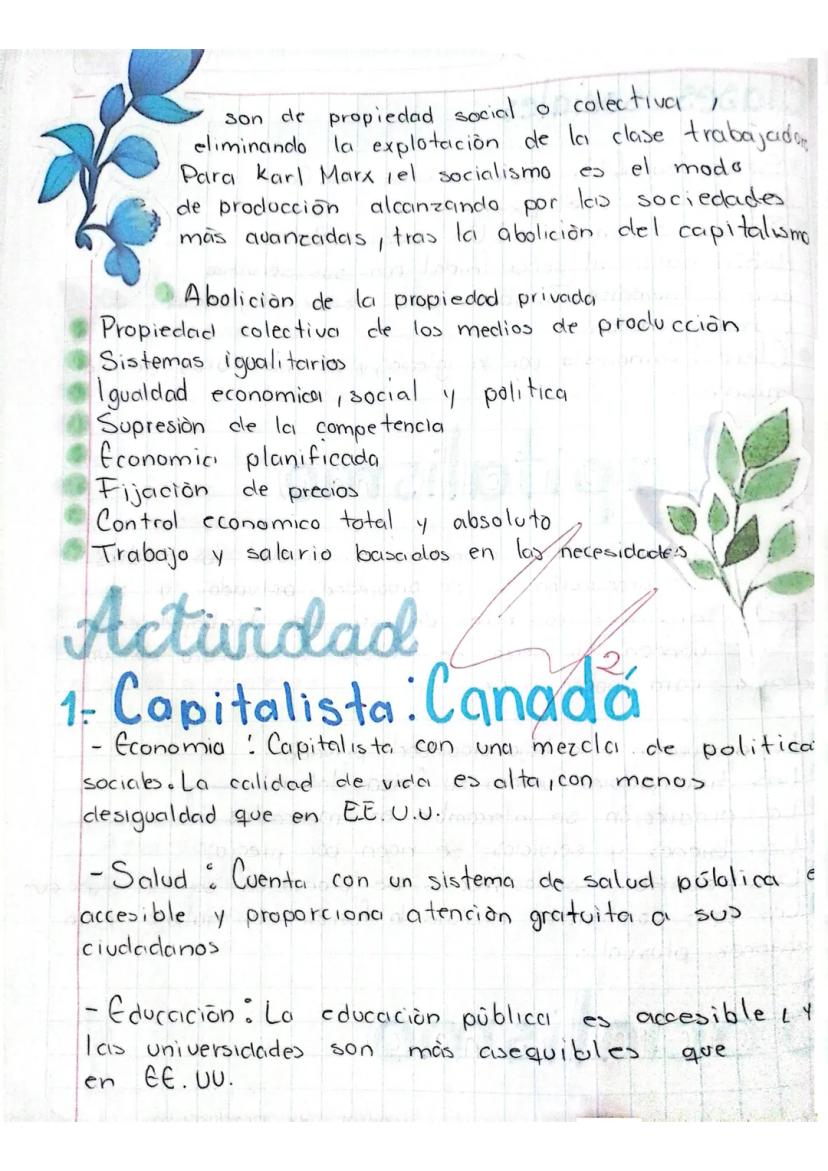 son de propiedad social o colectiva,
eliminando la explotación de la clase trabajador,
Para Karl Marx, el socialismo es el modo
de producción alcanzando por las sociedades
más avanzadas, tras la abolición del capitalismo
Abolición de la propiedad privada
Propiedad colectiva de los medios de producción
Sistemas igualitarios
Igualdad economica, social y politica
Supresión de la competencia
Economia planificada
Fijación de precios
Control economico total y absoluto
Trabajo y salario basados en las necesidades
Actividad
2
1- Capitalista: Canadá
- Economia : Capitalista con una mezcla de politica
sociales. La calidad de vida es alta, con menos
desigualdad que en EE.U.U.
- Salud : Cuenta con un sistema de salud pública e
accesible y proporciona atención gratuita a sus
ciudadanos
- Educación : La educación pública es accesible, y
las universidades son más asequibles que
en EE.UU.